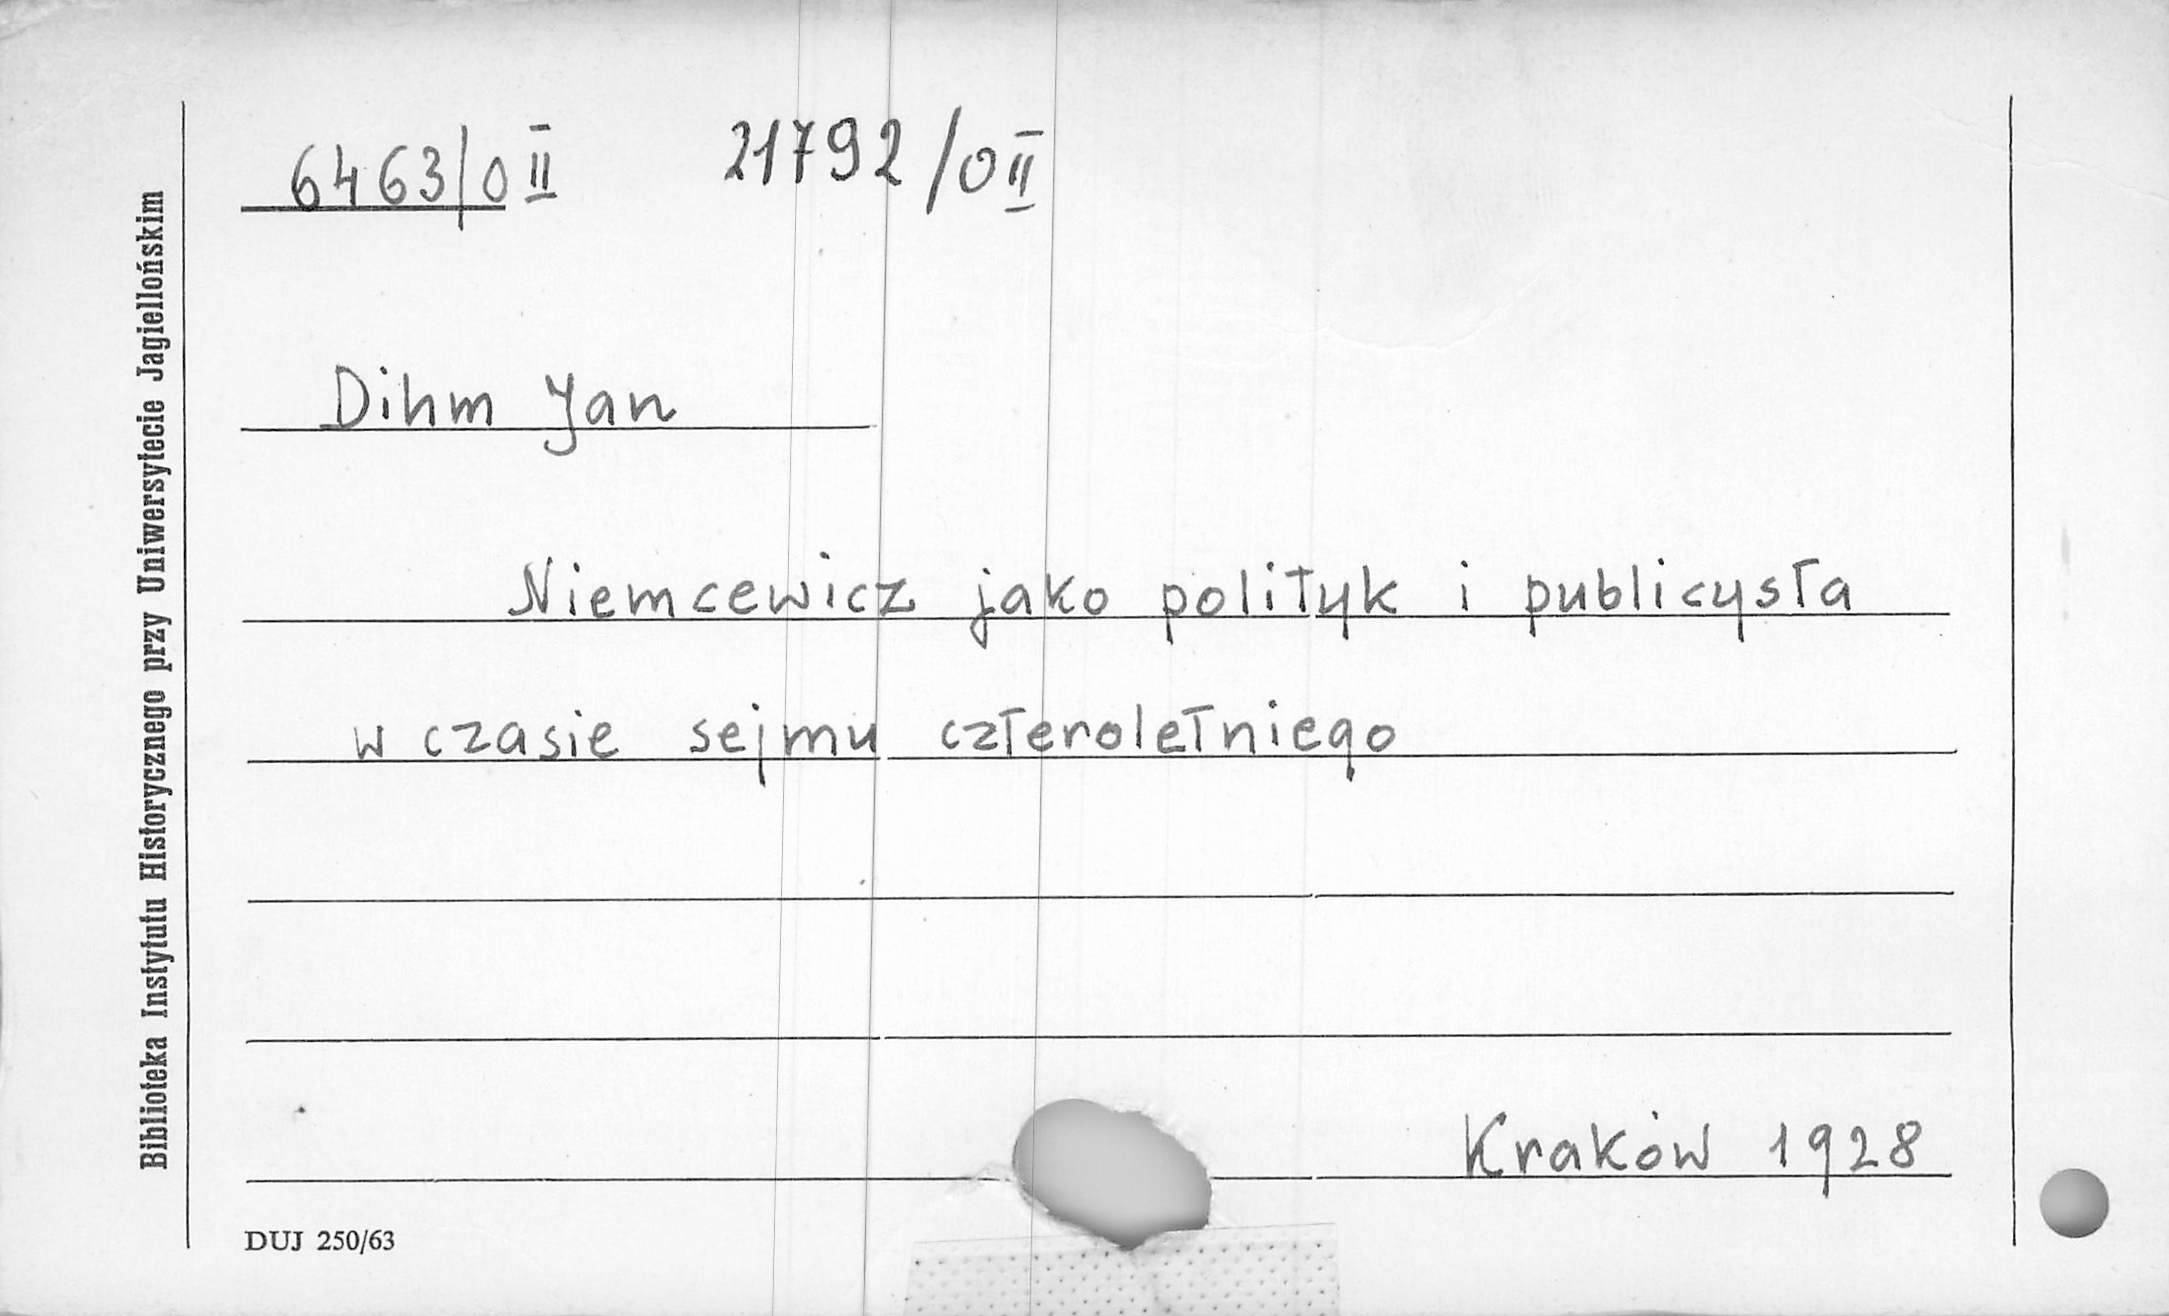 6463/0 II 21792/0 II
Dihm Jan
Niemcewicz jako polityk i publicysta
w czasie sejmu czteroletniego
Kraków 1928
DUJ 250/63
Biblioteka Instytutu Historycznego przy Uniwersytecie Jagiellońskim